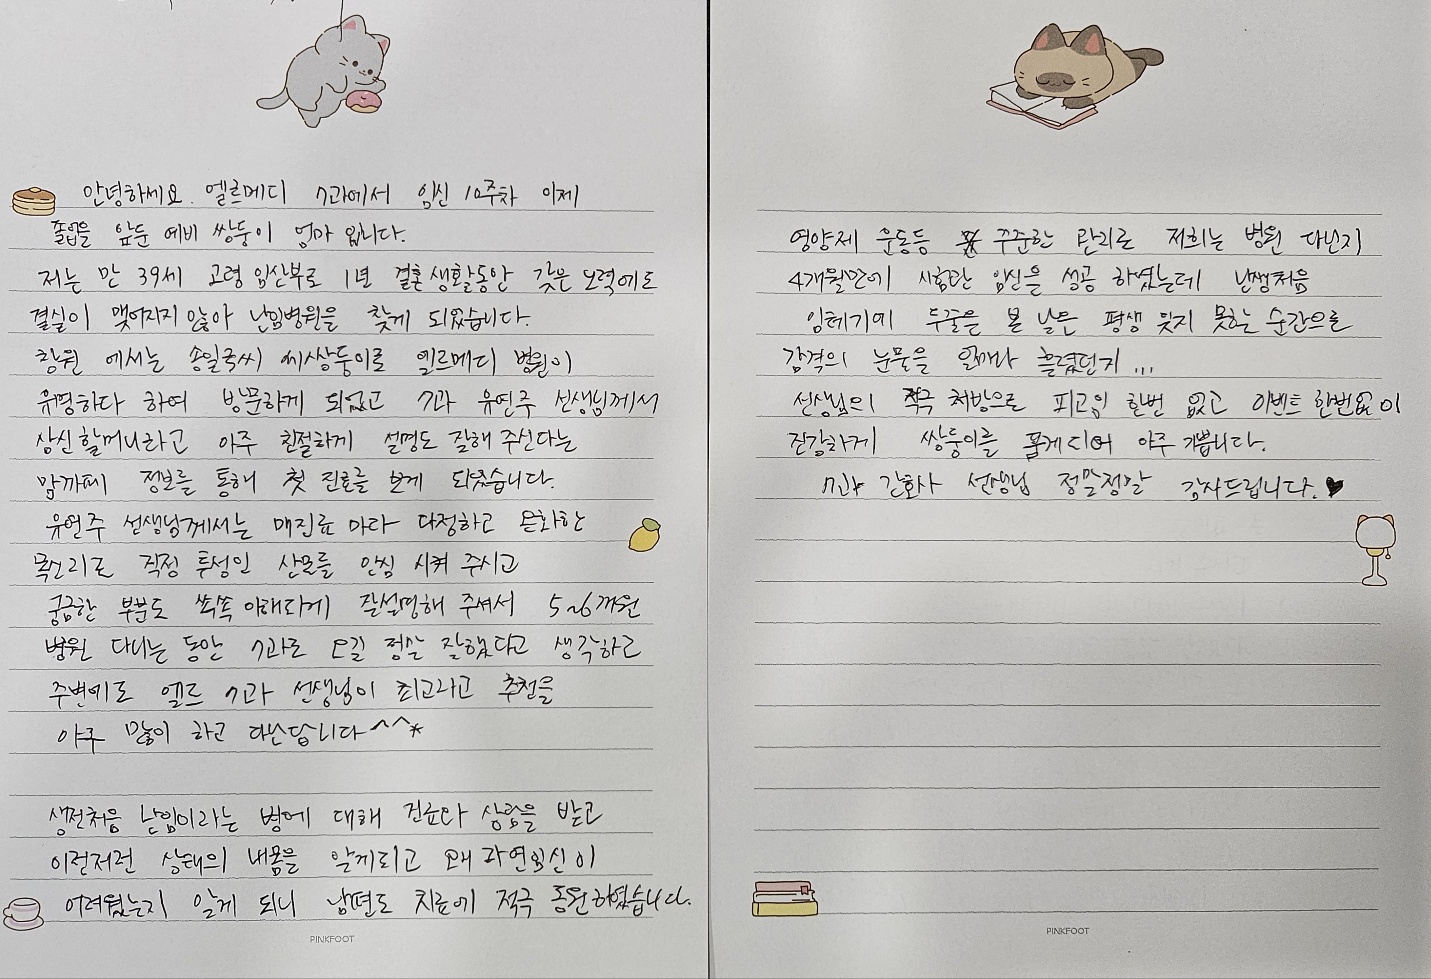 안녕하세요. 엘르메디 7과에서 임신 10주차 이제
졸업을 앞둔 예비 쌍둥이 엄마 입니다.
저는 만 39세 고령 임산부로 1년 결혼생활동안 갖은 노력에도
결실이 맺어지지 않아 난임병원을 찾게 되었습니다.
창원 에서는 송일국씨 세쌍둥이로 엘르메디 병원이
유명하다 하여 방문하게 되었고 7과 유연주 선생님께서
삼신할머니라고 아주 친절하게 설명도 잘해 주신다는
맘까페 정보를 통해 첫 진료를 보게 되었습니다.
유연주 선생님께서는 매진료 마다 다정하고 온화한
목소리로 걱정 투성인 산모를 안심 시켜 주시고
궁금한 부분도 쏙쏙 이해되게 잘설명해 주셔서 5~6개월
병원 다니는 동안 7과로 오길 정말 잘했다고 생각하고
주변에도 엘르 7과 선생님이 최고라고 추천을
아주 많이 하고 다닌답니다^^*
생전처음 난임이라는 병에 대해 진료와 상담을 받고
이런저런 상태의 내몸을 알게되고 왜 자연임신이
어려웠는지 알게 되니 남편도 치료에 적극 동원하였습니다.
PINKFOOT
영양제 운동등 꾸준한 관리로 저희는 병원 다닌지
4개월만에 시험관 임신을 성공 하였는데 난생처음
임테기에 두줄을 본 날은 평생 잊지 못하는 순간으로
감격의 눈물을 얼마나 흘렸던지...
선생님의 적극 처방으로 피고임 한번 없고 이벤트 한번없이
건강하게 쌍둥이를 품게되어 아주 기쁩니다.
간호사 선생님 정말정말 감사드립니다.♥
PINKFOOT